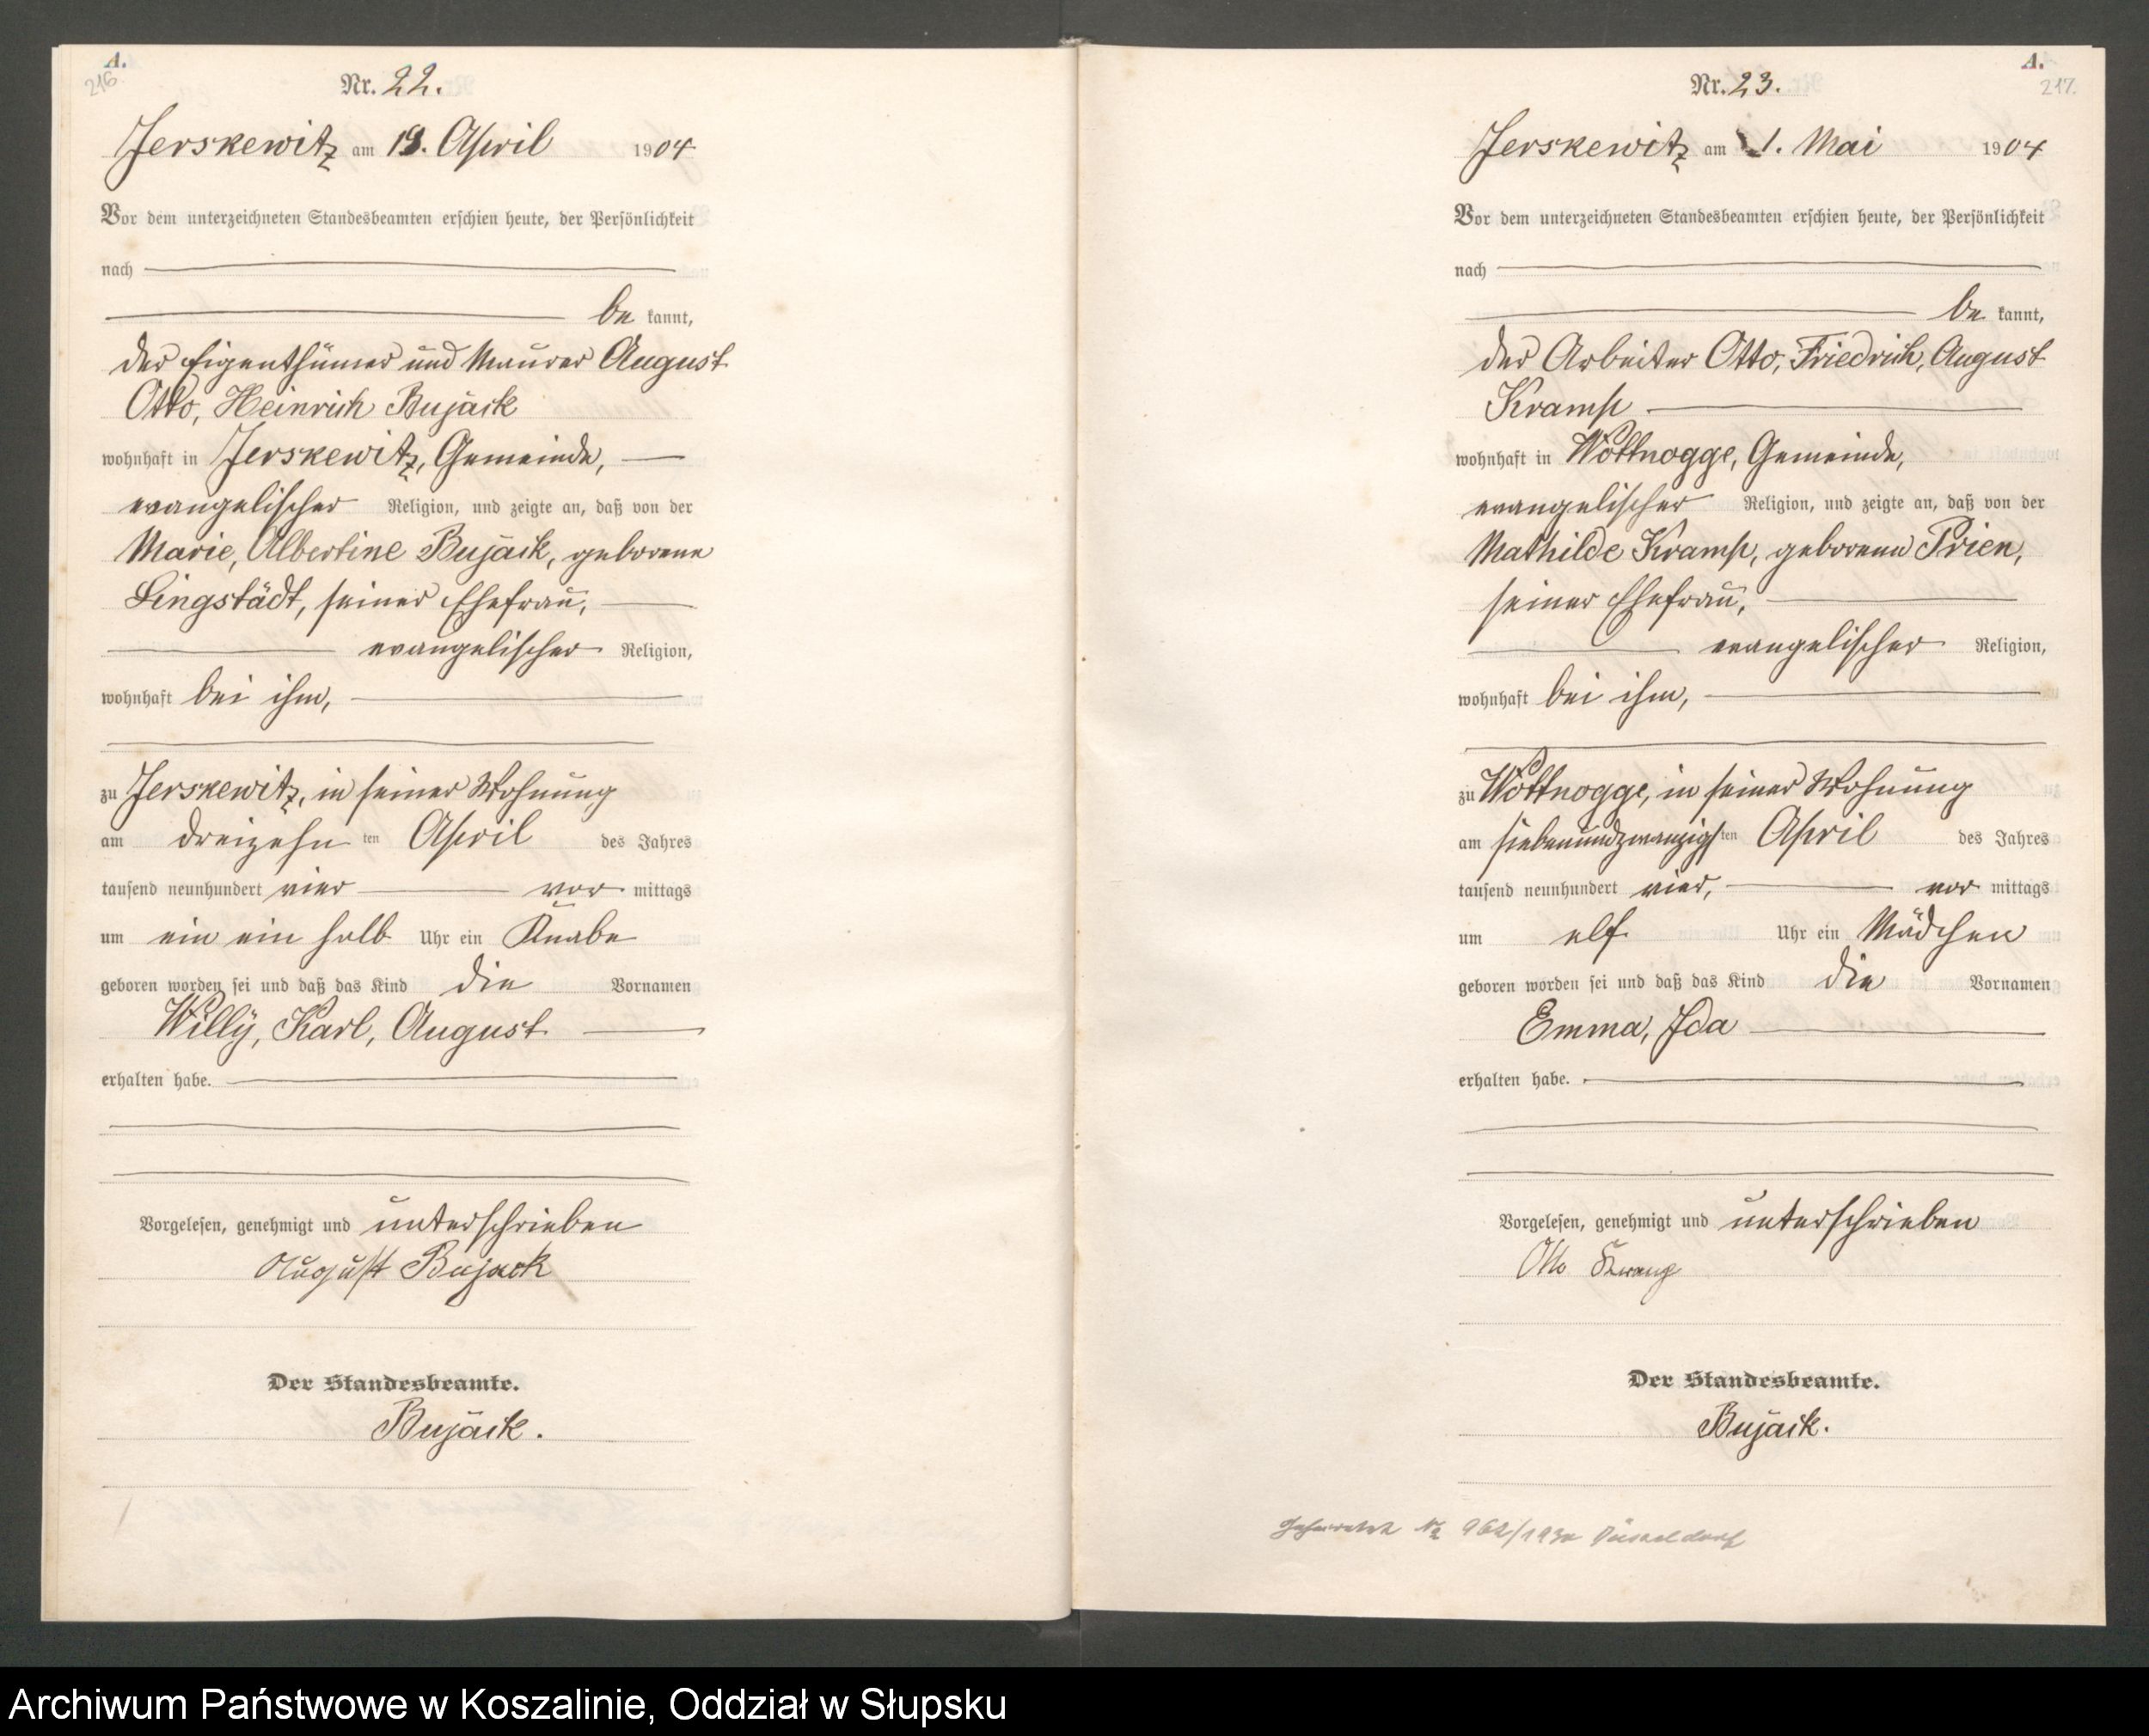 A.
216.
Nr. 22.
Jerskewitz am 19. April 1904
Vor dem unterzeichneten Standesbeamten erschien heute, der Persönlichkeit
nach
be kannt,
der Eigenthümer und Maurer August
Otto, Heinrich Bujack
wohnhaft in Jerskewitz, Gemeinde,
evangelischer Religion, und zeigte an, daß von der
Marie, Albertine Bujack, geborene
Lingstädt, seiner Ehefrau,
evangelischer Religion,
wohnhaft bei ihm,
zu Jerskewitz, in seiner Wohnung
am dreizehn ten April des Jahres
tausend neunhundert vier vor mittags
um ein ein halb Uhr ein Knabe
geboren worden sei und daß das Kind die Vornamen
Willy, Karl, August
erhalten habe.
Vorgelesen, genehmigt und unterschrieben
August Bujack
Der Standesbeamte.
Bujack.
A.
217.
Nr. 23.
Jerskewitz am 1. Mai 1904
Vor dem unterzeichneten Standesbeamten erschien heute, der Persönlichkeit
nach
be kannt,
der Arbeiter Otto, Friedrich, August
Kramp
wohnhaft in Wottnogge, Gemeinde,
evangelischer Religion, und zeigte an, daß von der
Mathilde Kramp, geborene Prien,
seiner Ehefrau,
evangelischer Religion,
wohnhaft bei ihm,
zu Wottnogge, in seiner Wohnung
am siebenundzwanzigs ten April des Jahres
tausend neunhundert vier, vor mittags
um elf Uhr ein Mädchen
geboren worden sei und daß das Kind die Vornamen
Emma, Ida
erhalten habe.
Vorgelesen, genehmigt und unterschrieben
Otto Kramp
Der Standesbeamte.
Bujack.
Geheiratet No 962/1930 Düsseldorf
Archiwum Państwowe w Koszalinie, Oddział w Słupsku